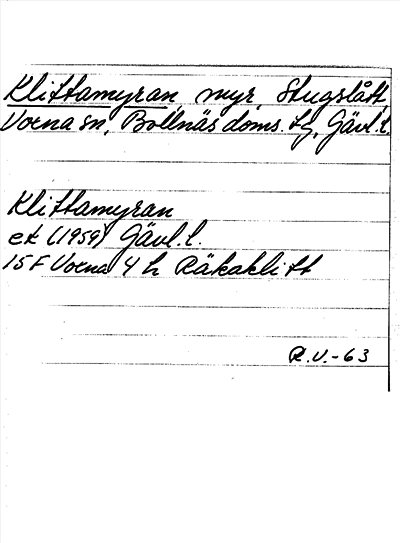 Klittamyran, myr, Stugslått,
Voxna sn, Bollnäs doms. tg, Gävl. l.
Klittamyran
ek (1959) Gävl. l.
15F Voxna 4 h Räkaklitt
R.V.-63